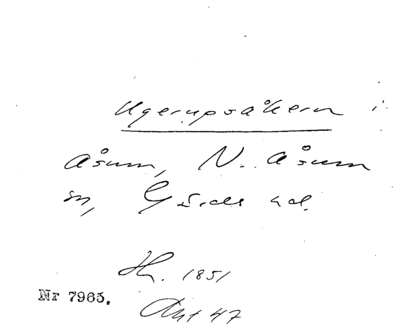 Ugerupsåkern i
Åsum, N. Åsum
sn, Gärds hd.
Hr. 1851
Nr 7965.
Akt 47